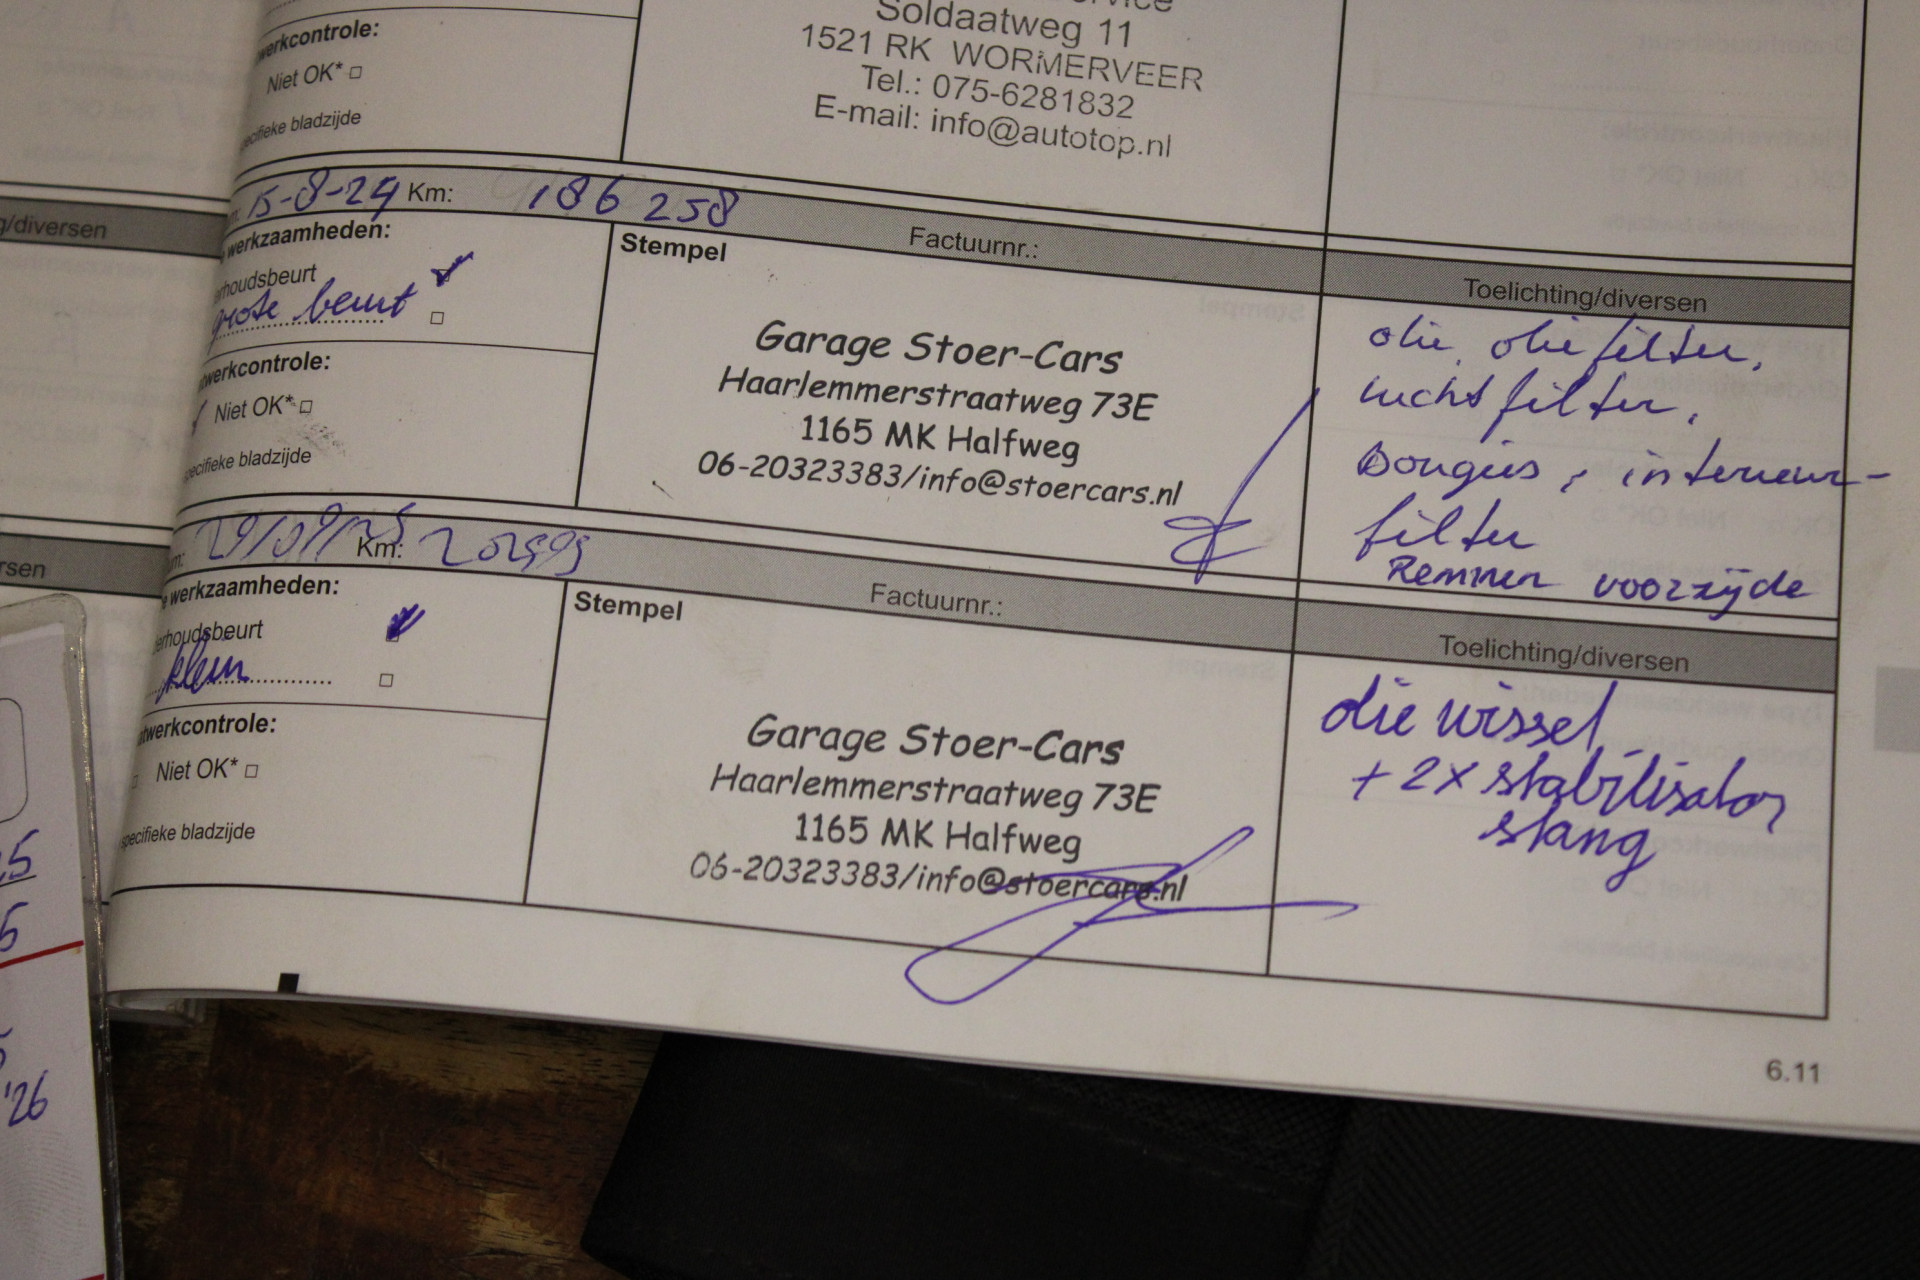 Soldaatweg 11
1521 RK WORMERVEER
Tel.: 075-6281832
E-mail: info@autotop.nl
werkcontrole:
Niet OK* □
specifieke bladzijde
15-8-24 Km: 186 258
werkzaamheden:
rhoudsbeurt
grote beurt
werkcontrole:
Niet OK* □
specifieke bladzijde
Stempel Factuurnr.:
Garage Stoer-Cars
Haarlemmerstraatweg 73E
1165 MK Halfweg
06-20323383/info@stoercars.nl
Toelichting/diversen
olie, oliefilter,
luchtfilter,
Bougies, interieur-
filter
Remmen voorzijde
Km:
e werkzaamheden:
erhoudsbeurt
klein
twerkcontrole:
□ Niet OK* □
specifieke bladzijde
Stempel Factuurnr.:
Garage Stoer-Cars
Haarlemmerstraatweg 73E
1165 MK Halfweg
06-20323383/info@stoercars.nl
Toelichting/diversen
olie wissel
+ 2x stabilisator
stang
6.11
g/diversen
rsen
'26